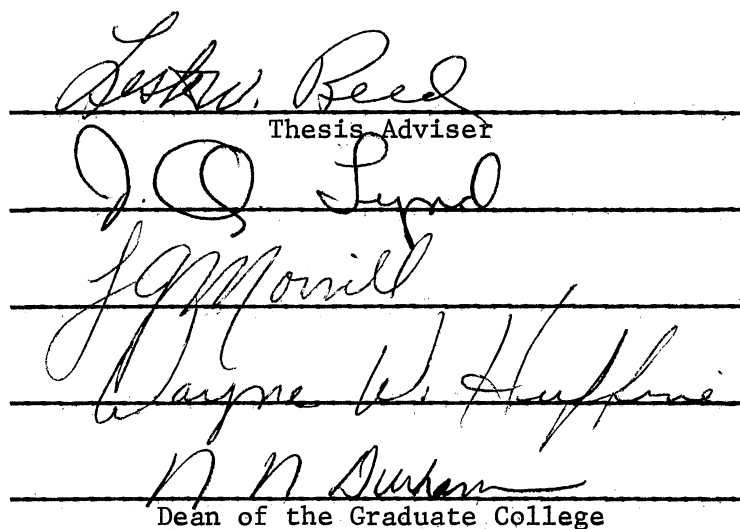 Lester W. Reed
Thesis Adviser
J. Q. Lynd
L G Morrill
Wayne W. Huffine
N N Durham
Dean of the Graduate College